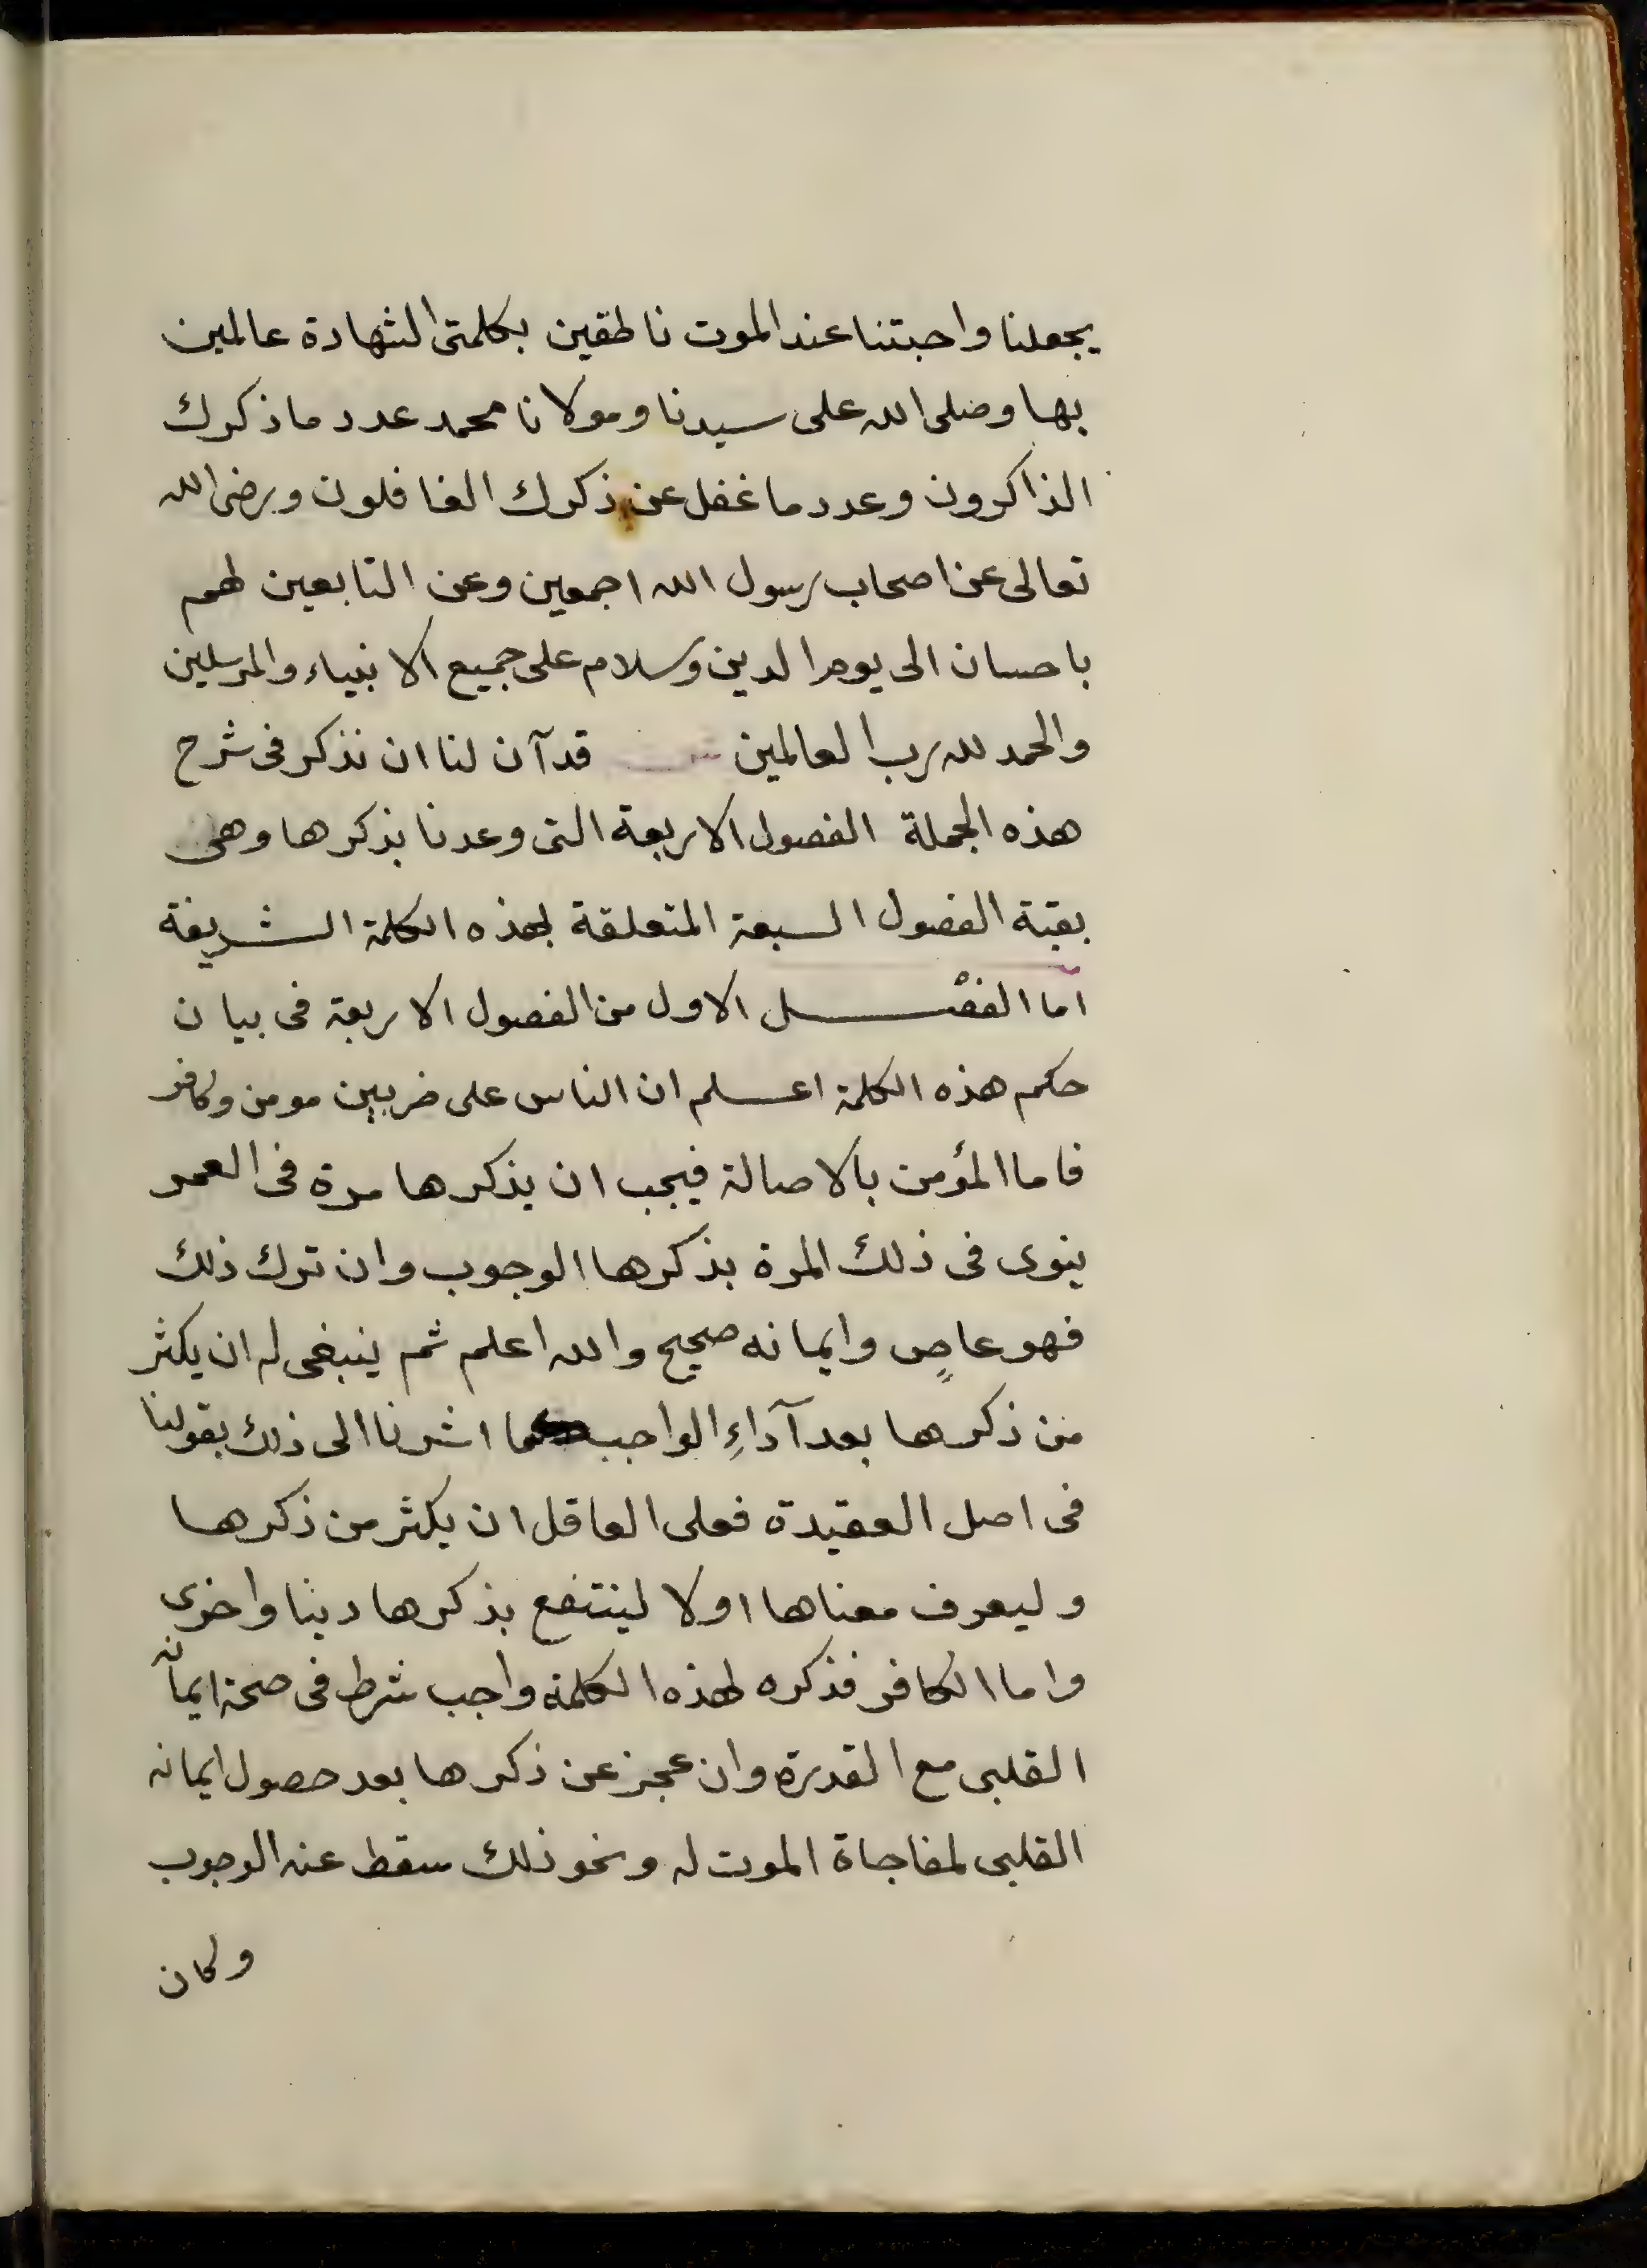 يجعلنا واحبتنا عند الموت ناطقين بكلمتى الشهادة عالمين
بها وصلى الله على سيدنا ومولانا محمد عدد ما ذكرك
الذاكرون وعدد ما غفل عن ذكرك الغافلون ورضى الله
تعالى عن اصحاب رسول الله اجمعين وعن التابعين لهم
باحسان الى يوم الدين وسلام على جميع الانبياء والمرسلين
والحمد لله رب العالمين قد آن لنا ان نذكر فى شرح
هذه الجملة الفصول الاربعة التى وعدنا بذكرها وهى
بقية الفصول السبعة المتعلقة بهذه الكلمة الشريفة
اما الفصل الاول من الفصول الاربعة فى بيان
حكم هذه الكلمة اعلم ان الناس على ضربين مومن وكافر
فاما المؤمن بالاصالة فيجب ان يذكرها مرة فى العمر
ينوى فى ذلك المرة بذكرها الوجوب وان ترك ذلك
فهو عاصٍ وايمانه صحيح والله اعلم ثم ينبغى له ان يكثر
من ذكرها بعد آداءِ الواجب كما اشرنا الى ذلك بقولنا
فى اصل العقيدة فعلى العاقل ان يكثر من ذكرها
وليعرف معناها اولا لينتفع بذكرها دينا واخرى
واما الكافر فذكره لهذه الكلمة واجب شرط فى صحة ايمانه
القلبى مع القدرة وان عجز عن ذكرها بعد حصول ايمانه
القلبى لمفاجاة الموت له ونحو ذلك سقط عنه الوجوب
وكان